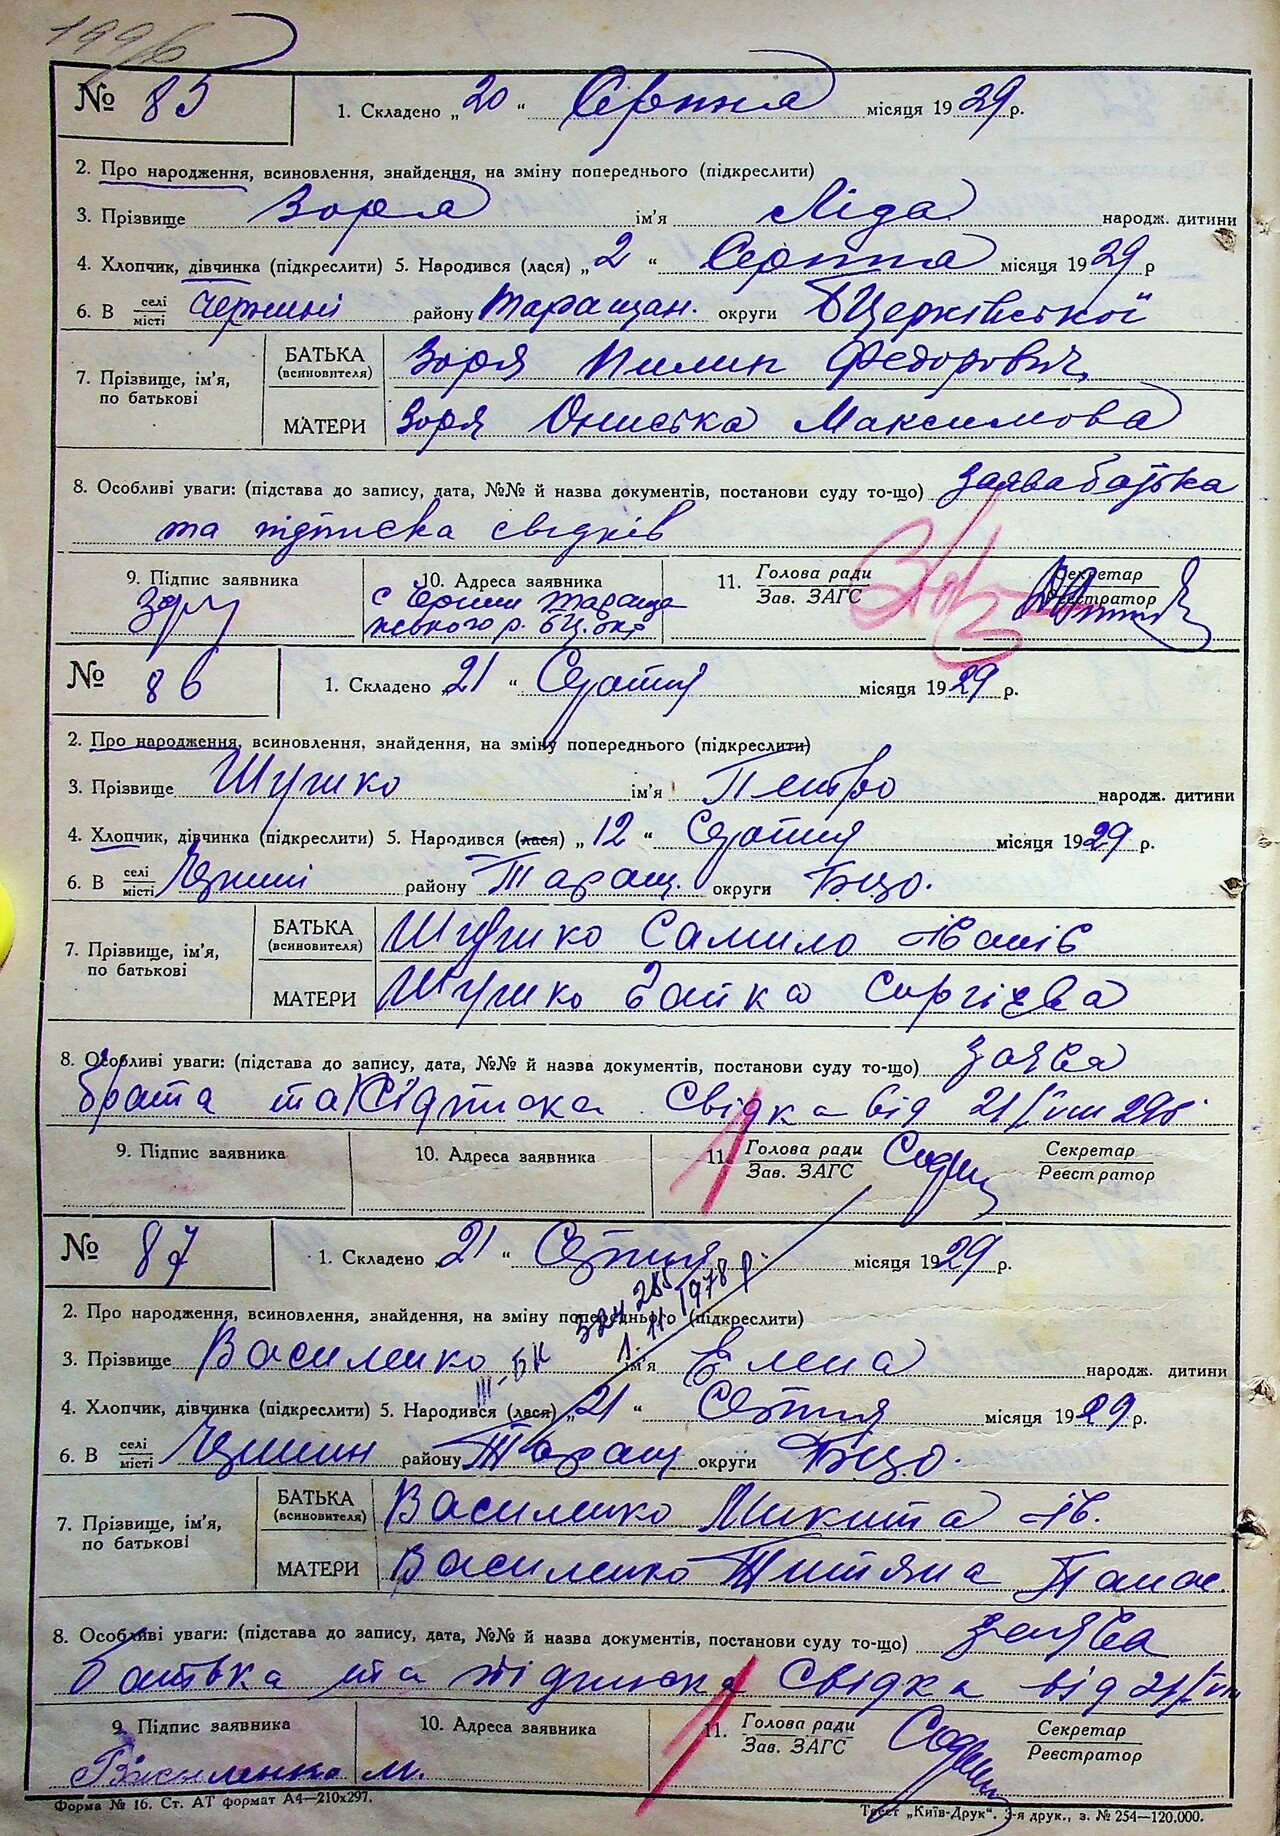 1996
№ 85 1. Складено „20“ Серпня місяця 1929 р.
2. Про народження, всиновлення, знайдення, на зміну попереднього (підкреслити)
3. Прізвище Зоря ім'я Ліда народж. дитини
4. Хлопчик, дівчинка (підкреслити) 5. Народився (лася) „2“ Серпня місяця 1929 р
6. В селі місті Чернині району Таращан. округи БЦерківської
7. Прізвище, ім'я, по батькові БАТЬКА (всиновителя) Зоря Пилип Федорович
МАТЕРИ Зоря Ониська Максимова
8. Особливі уваги: (підстава до запису, дата, №№ й назва документів, постанови суду то-що) заява батька
та підписка свідків
9. Підпис заявника 10. Адреса заявника 11. Голова ради Зав. ЗАГС Секретар Реєстратор
с Чернин Тараща
нського р. БЦ. окр
№ 86 1. Складено 21“ Серпня місяця 1929 р.
2. Про народження, всиновлення, знайдення, на зміну попереднього (підкреслити)
3. Прізвище ім'я Петро народж. дитини
4. Хлопчик, дівчинка (підкреслити) 5. Народився (лася) „12“ Серпня місяця 1929 р.
6. В селі місті Чернині району Таращ. округи БЦО.
7. Прізвище, ім'я, по батькові БАТЬКА (всиновителя) Самило Іванів
МАТЕРИ Сергієва
8. Особливі уваги: (підстава до запису, дата, №№ й назва документів, постанови суду то-що) заява
брата та підписка свідка від 21/VIII 29р.
9. Підпис заявника 10. Адреса заявника 11. Голова ради Зав. ЗАГС Секретар Реєстратор
№ 87 1. Складено 21“ Серпня місяця 1929 р.
2. Про народження, всиновлення, знайдення, на зміну попереднього (підкреслити)
III-БК 324285 1.11.1978 р.
3. Прізвище Василенко ім'я Елена народж. дитини
4. Хлопчик, дівчинка (підкреслити) 5. Народився (лася) „21“ Серпня місяця 1929 р.
6. В селі місті Чернин району Таращ округи БЦО.
7. Прізвище, ім'я, по батькові БАТЬКА (всиновителя) Василенко Микита Ів.
МАТЕРИ Василенко Титяна Панас.
8. Особливі уваги: (підстава до запису, дата, №№ й назва документів, постанови суду то-що) заява
батька та підписка свідка від 21/VIII
9. Підпис заявника 10. Адреса заявника 11. Голова ради Зав. ЗАГС Секретар Реєстратор
Василенко М.
Форма № 16. Ст. АТ формат А4—210х297. Трест „Київ-Друк“. 3-я друк., з. № 254—120.000.